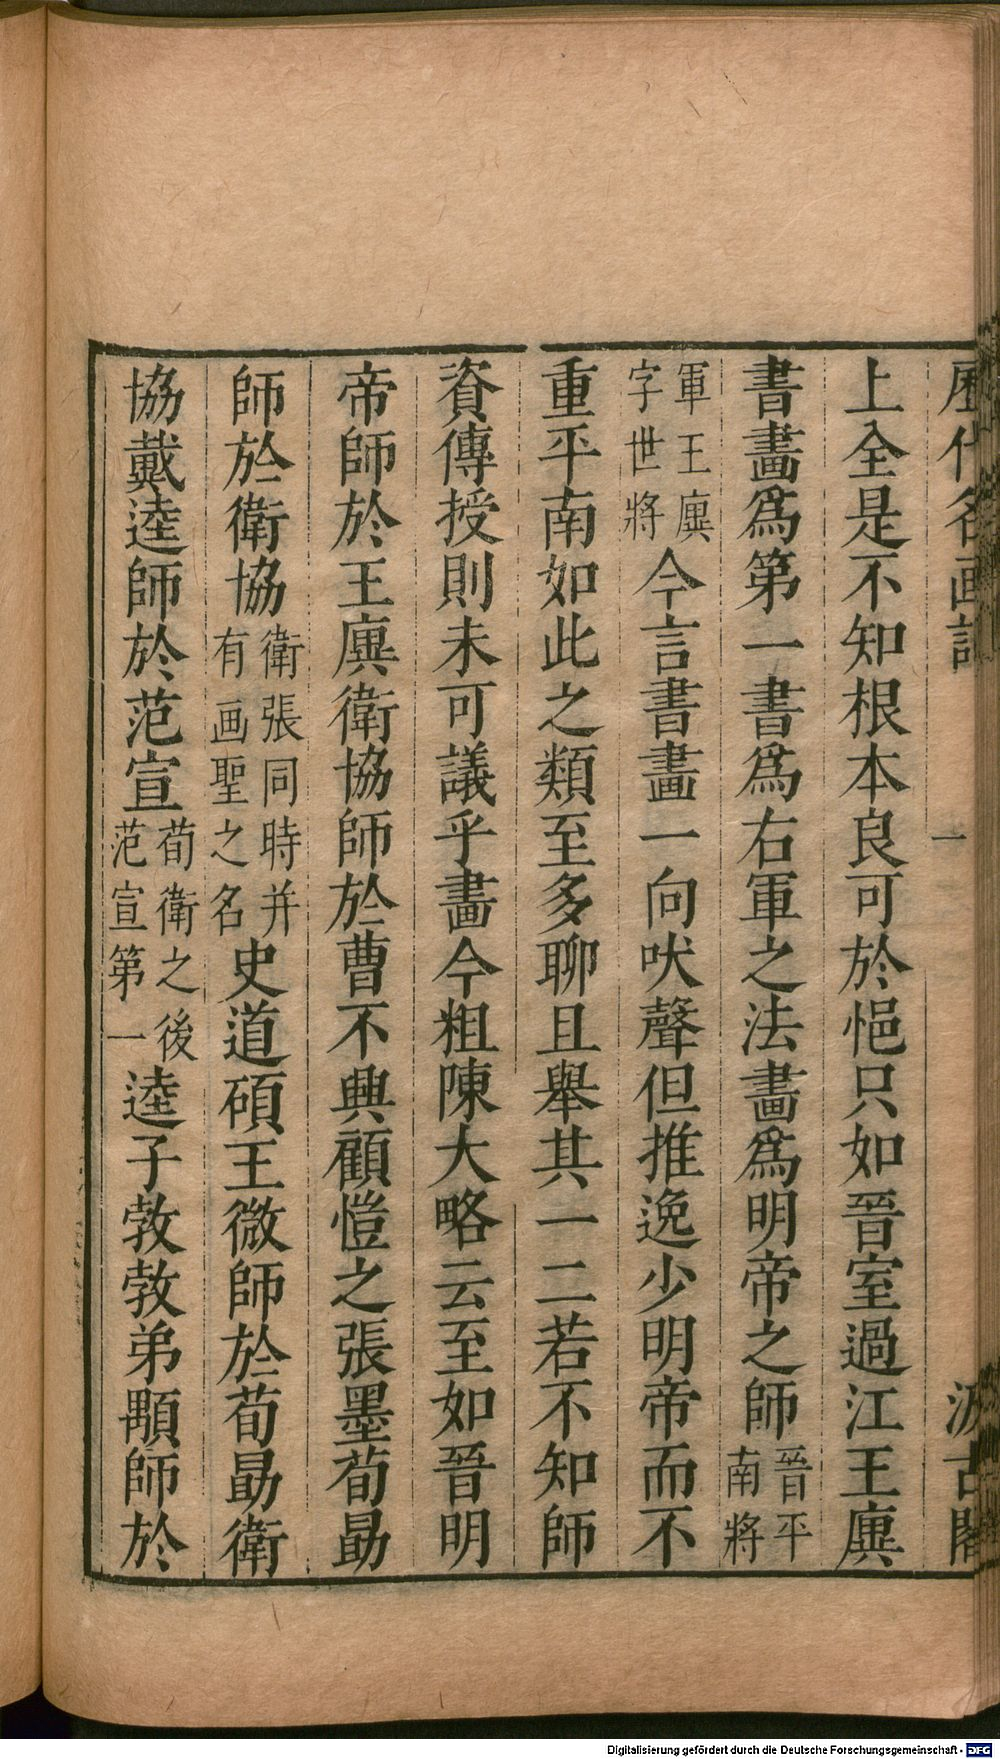 歷代名画記 一 汲古閣
上全是不知根本良可於悒只如晉室過江王廙
書畫爲第一書爲右軍之法畫爲明帝之師晉平南將
軍王廙字世將今言書畫一向吠聲但推逸少明帝而不
重平南如此之類至多聊且舉其一二若不知師
資傳授則未可議乎畫今粗陳大略云至如晉明
帝師於王廙衛協師於曹不興顧愷之張墨荀勗
師於衛協衛張同時并有画聖之名史道碩王微師於荀勗衛
協戴逵師於范宣荀衛之後范宣第一逵子敩敩弟顒師於
Digitalisierung gefördert durch die Deutsche Forschungsgemeinschaft - DFG